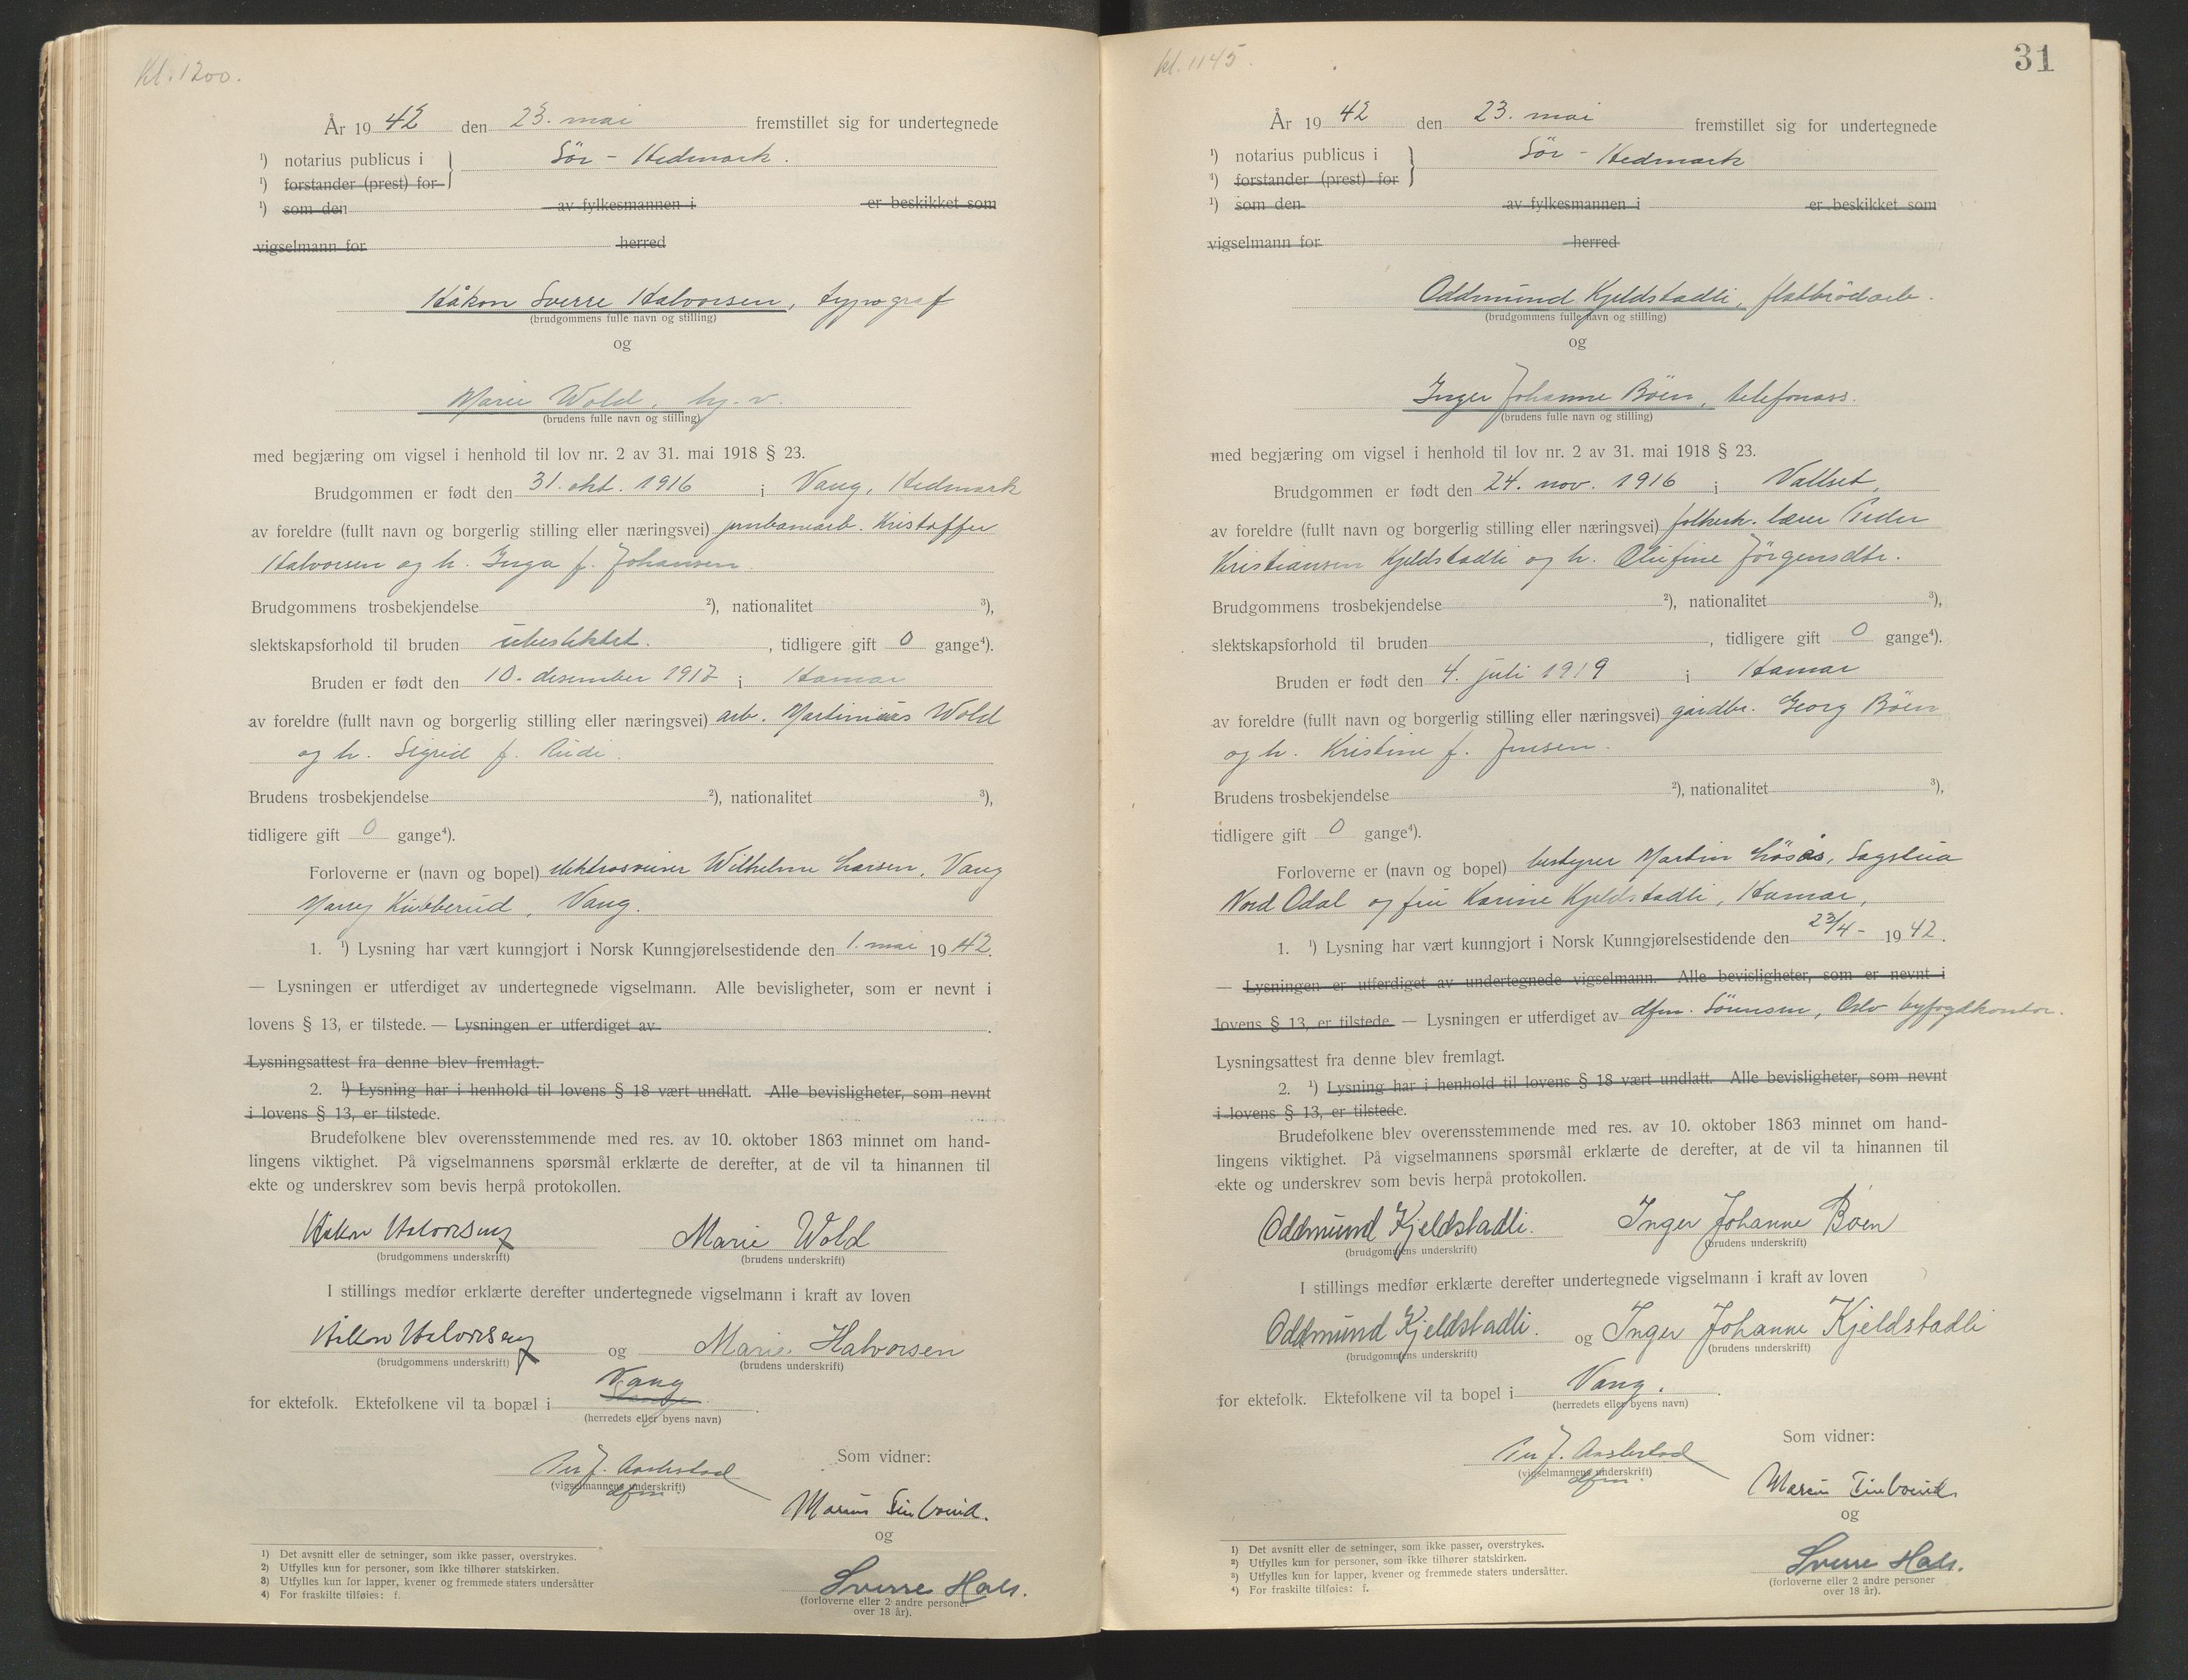 Kl. 1200.
År 1942 den 23. mai fremstillet sig for undertegnede
¹) notarius publicus i Sör - Hedmark.
¹) forstander (prest) for
¹) som den av fylkesmannen i er beskikket som
vigselmann for herred
Håkon Sverre Halvorsen, typograf
(brudgommens fulle navn og stilling)
og
Marie Wold, hj. v.
(brudens fulle navn og stilling)
med begjæring om vigsel i henhold til lov nr. 2 av 31. mai 1918 § 23.
Brudgommen er født den 31. okt. 1916 i Vang, Hedmark
av foreldre (fullt navn og borgerlig stilling eller næringsvei) jernbanearb. Kristoffer
Halvorsen og h. Inga f. Johansen
Brudgommens trosbekjendelse ²), nationalitet ³),
slektskapsforhold til bruden ubeslektet. , tidligere gift 0 gange⁴).
Bruden er født den 10. desember 1917 i Hamar
av foreldre (fullt navn og borgerlig stilling eller næringsvei) arb. Martinius Wold
og h. Sigrid f. Rudi.
Brudens trosbekjendelse ²), nationalitet ³),
tidligere gift 0 gange⁴).
Forloverne er (navn og bopel) Wilhelm Larsen, Vang
Kubberud, Vang.
1. ¹) Lysning har vært kunngjort i Norsk Kunngjørelsestidende den 1. mai 1942.
— Lysningen er utferdiget av undertegnede vigselmann. Alle bevisligheter, som er nevnt i
lovens § 13, er tilstede. — Lysningen er utferdiget av .
Lysningsattest fra denne blev fremlagt.
2. ¹) Lysning har i henhold til lovens § 18 vært undlatt. Alle bevisligheter, som nevnt
i lovens § 13, er tilstede.
Brudefolkene blev overensstemmende med res. av 10. oktober 1863 minnet om hand-
lingens viktighet. På vigselmannens spørsmål erklærte de derefter, at de vil ta hinannen til
ekte og underskrev som bevis herpå protokollen.
Håkon Halvorsen Marie Wold
(brudgommens underskrift) (brudens underskrift)
I stillings medfør erklærte derefter undertegnede vigselmann i kraft av loven
Håkon Halvorsen og Marie Halvorsen
(brudgommens underskrift) (brudens underskrift)
Vang
for ektefolk. Ektefolkene vil ta bopæl i .
(herredets eller byens navn)
Som vidner:
Per J. Aasletad
(vigselmannens underskrift)
dfm.
Marius
og
Sverre Hals.
(forloverne eller 2 andre personer
over 18 år).
1) Det avsnitt eller de setninger, som ikke passer, overstrykes.
2) Utfylles kun for personer, som ikke tilhører statskirken.
3) Utfylles kun for lapper, kvener og fremmede staters undersåtter
4) For fraskilte tilføies: f.
kl. 1145.
31
År 1942 den 23. mai fremstillet sig for undertegnede
¹) notarius publicus i Sör - Hedmark
¹) forstander (prest) for
¹) som den av fylkesmannen i er beskikket som
vigselmann for herred
Oddmund Kjeldstadli, flatbrödarb.
(brudgommens fulle navn og stilling)
og
Inger Johanne Böen, telefonass.
(brudens fulle navn og stilling)
med begjæring om vigsel i henhold til lov nr. 2 av 31. mai 1918 § 23.
Brudgommen er født den 24. nov. 1916 i Vallset,
av foreldre (fullt navn og borgerlig stilling eller næringsvei) folkesk. lærer Peder
Kristiansen Kjeldstadli og h. Olufine Jörgensdtr.
Brudgommens trosbekjendelse ²), nationalitet ³),
slektskapsforhold til bruden , tidligere gift 0 gange⁴).
Bruden er født den 4. juli 1919 i Hamar
av foreldre (fullt navn og borgerlig stilling eller næringsvei) gårdbr. Georg Böen
og h. Kristine f. Jensen.
Brudens trosbekjendelse ²), nationalitet ³),
tidligere gift 0 gange⁴).
Forloverne er (navn og bopel) bestyrer Martin Lösås, Sagstua
Nord Odal og fru Karine Kjeldstadli, Hamar,
1. ¹) Lysning har vært kunngjort i Norsk Kunngjørelsestidende den 23/4 - 1942.
— Lysningen er utferdiget av undertegnede vigselmann. Alle bevisligheter, som er nevnt i
lovens § 13, er tilstede. — Lysningen er utferdiget av dfm. Sörensen, Oslo byfogdkontor.
Lysningsattest fra denne blev fremlagt.
2. ¹) Lysning har i henhold til lovens § 18 vært undlatt. Alle bevisligheter, som nevnt
i lovens § 13, er tilstede.
Brudefolkene blev overensstemmende med res. av 10. oktober 1863 minnet om hand-
lingens viktighet. På vigselmannens spørsmål erklærte de derefter, at de vil ta hinannen til
ekte og underskrev som bevis herpå protokollen.
Oddmund Kjeldstadli. Inger Johanne Böen
(brudgommens underskrift) (brudens underskrift)
I stillings medfør erklærte derefter undertegnede vigselmann i kraft av loven
Oddmund Kjeldstadli. og Inger Johanne Kjeldstadli
(brudgommens underskrift) (brudens underskrift)
for ektefolk. Ektefolkene vil ta bopel i Vang.
(herredets eller byens navn)
Som vidner:
Per J. Aasletad
(vigselmannens underskrift)
dfm.
Marius
og
Sverre Hals.
(forloverne eller 2 andre personer
over 18 år).
1) Det avsnitt eller de setninger, som ikke passer, overstrykes.
2) Utfylles kun for personer, som ikke tilhører statskirken.
3) Utfylles kun for lapper, kvener og fremmede staters undersåtter.
4) For fraskilte tilføies: f.